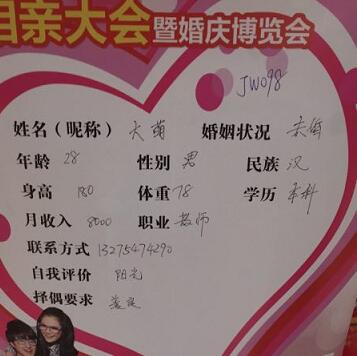 相亲大会暨婚庆博览会
JW098
姓名（昵称） 大萌 婚姻状况 未婚
年龄 28 性别 男 民族 汉
身高 180 体重 78 学历 本科
月收入 8000 职业 教师
联系方式 13275474290
自我评价 阳光
择偶要求 善良